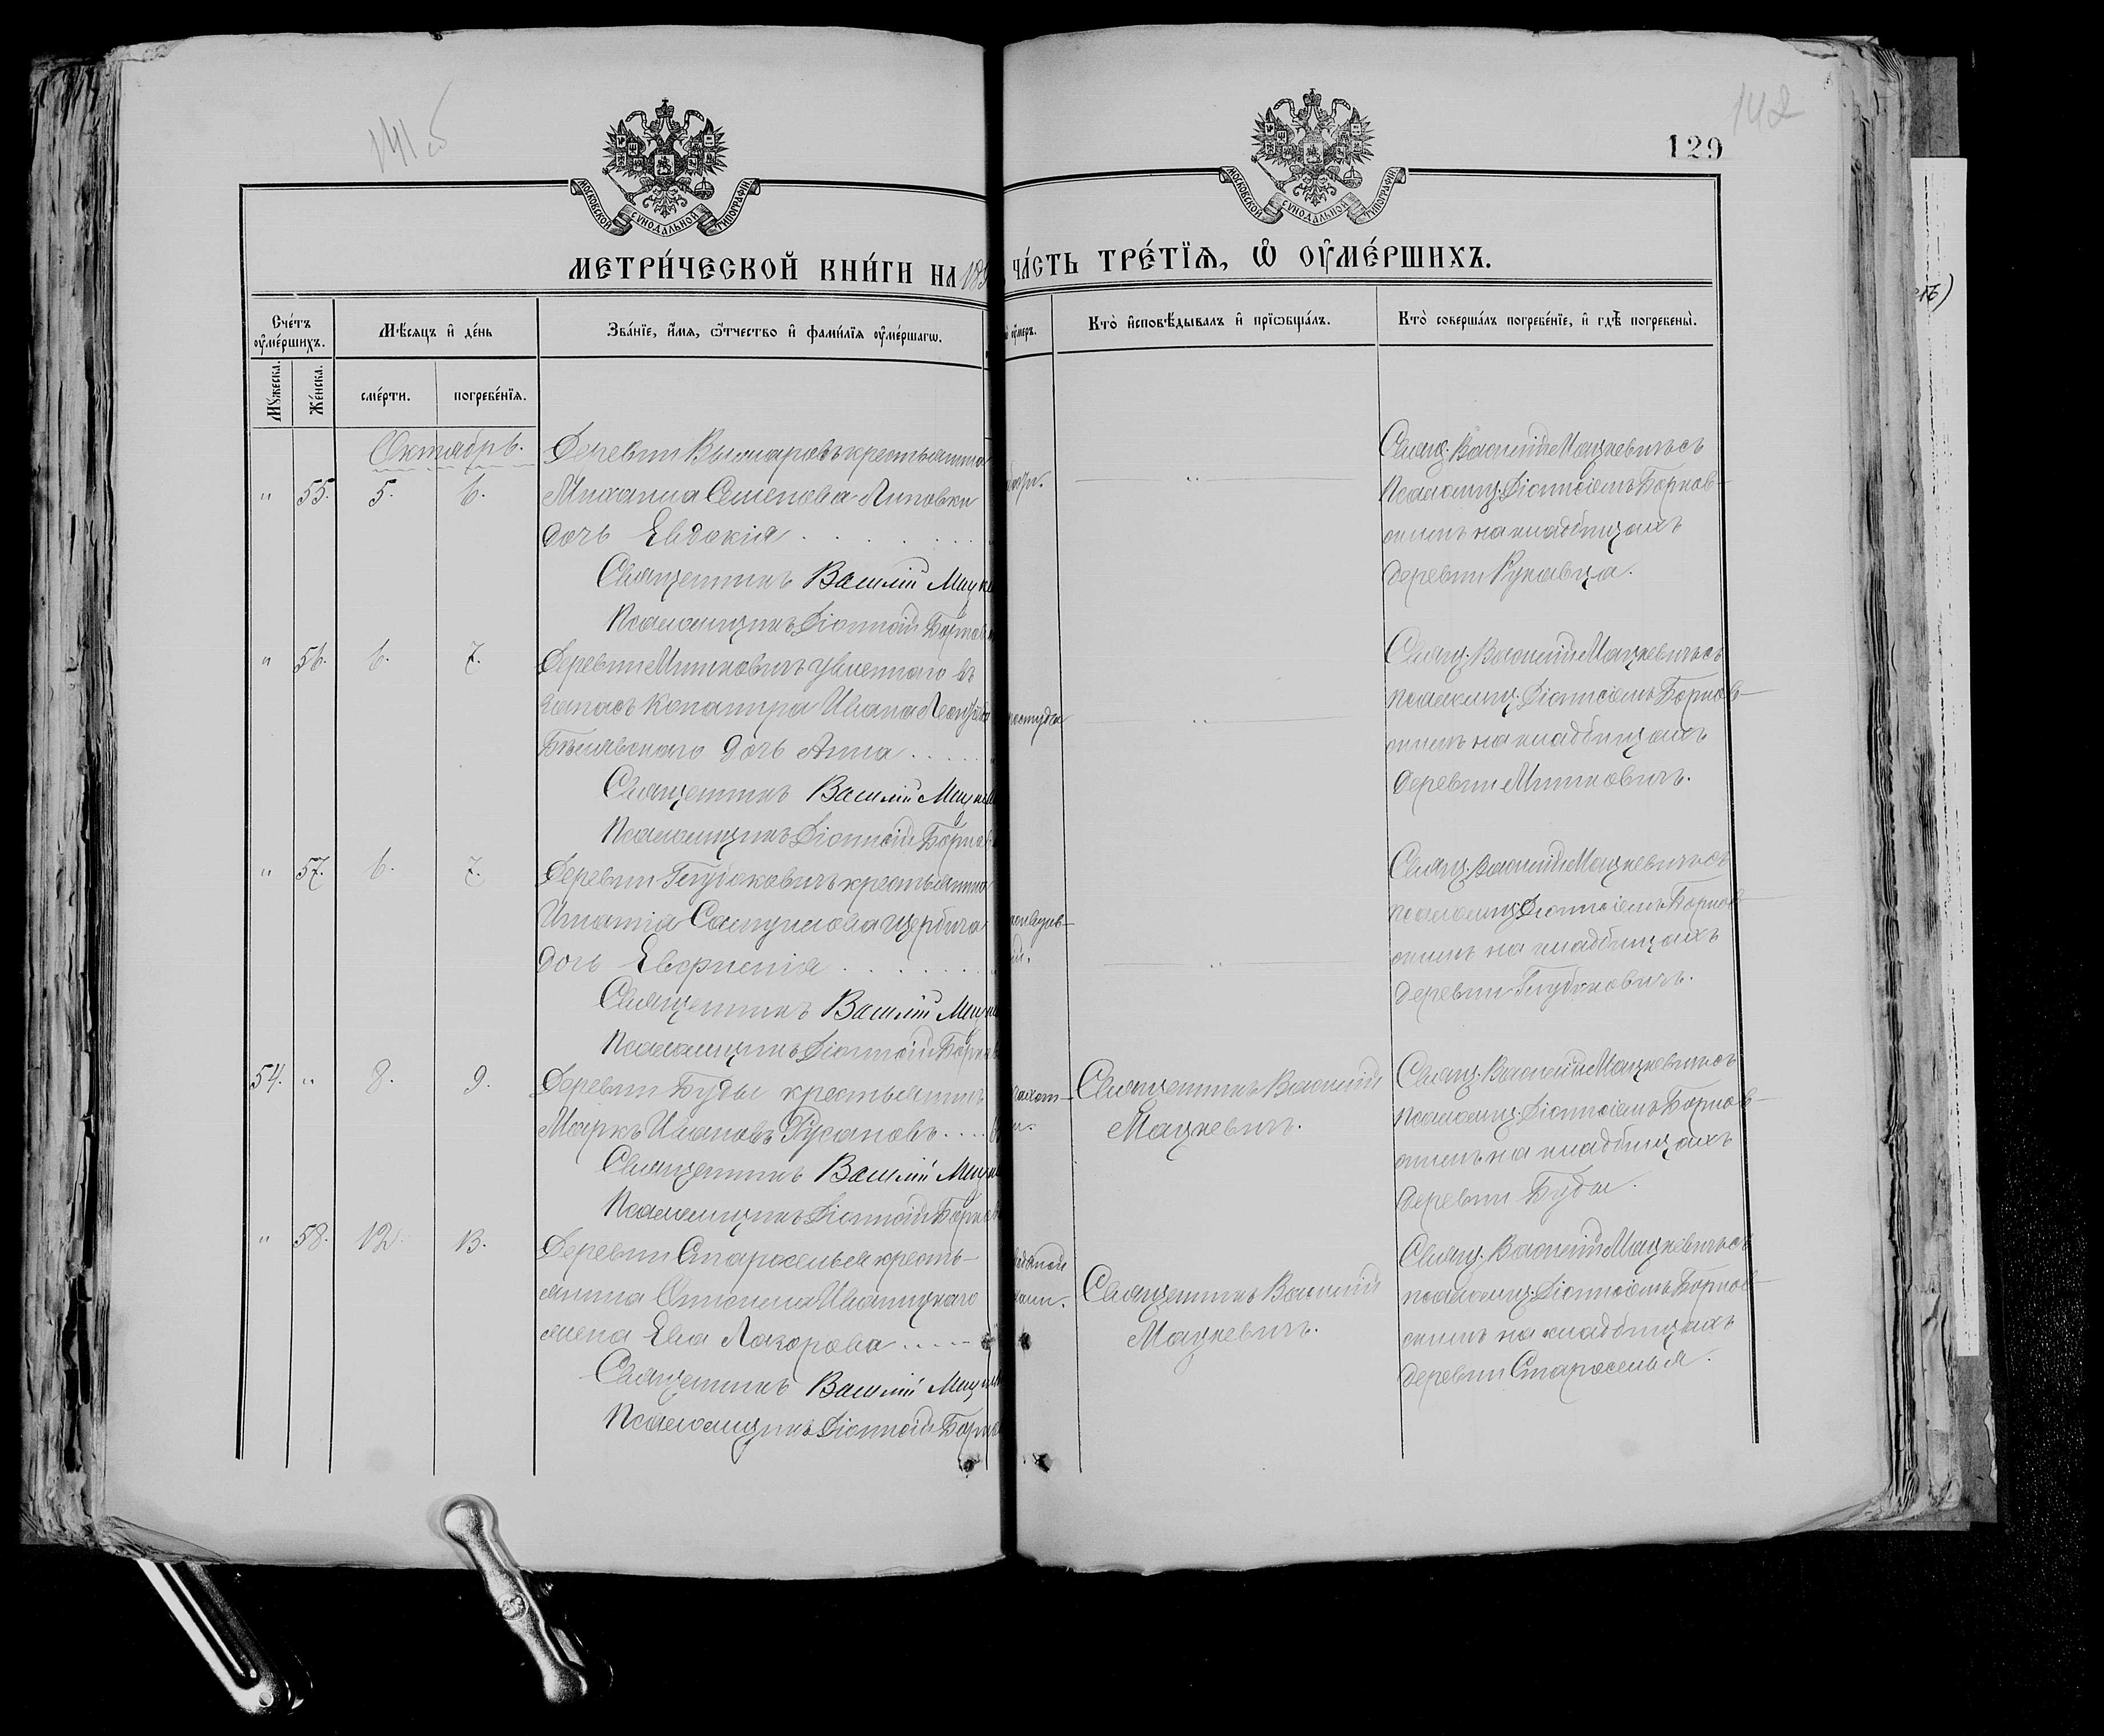 141 об
142
129
МОСКОВСКОЙ СѴНОДАЛЬНОЙ ТИПОГРАФІИ
МОСКОВСКОЙ СѴНОДАЛЬНОЙ ТИПОГРАФІИ
МЕТРИ́ЧЕСКОЙ КНИ́ГИ НА 189
ЧА́СТЬ ТРЕ́ТЇѦ, Ѽ ОУ҆МЕ́РШИХЪ.
Сче́тъ оу҆ме́ршихъ.
Мѣ́сяцъ и҆ де́нь
Зва́нїе, и҆́мя, ѻ҆́тчество и҆ фами́лїя оу҆ме́ршагѡ.
оу҆́меръ.
Кто̀ и҆сповѣ́дывалъ и҆ прїѡбща́лъ.
Кто̀ соверша́лъ погребе́нїе, и҆ гдѣ̀ погребены̀.
Мꙋ́жеска.
Же́нска.
сме́рти.
погребе́нїя.
Октябрь.
" 55. 5. 6.
Деревни крестьянина
Михаила Семенова Липовки
дочь Евдокія
Священникъ Василій Мацке
Псаломщикъ Діонисій Борнов
— " —
Свящ. Василій Мацкевичъ съ
псаломщ. Діонисіемъ Борнов-
скимъ на кладбищахъ
деревни Рукавца.
" 56. 6. 7.
Деревни Митьковичъ уволеннаго въ
запасъ Ивана
Бѣлявскаго дочь Анна
Священникъ Василій Мацке
Псаломщикъ Діонисій Борнов
простуды
— " —
Свящ. Василій Мацкевичъ съ
псаломщ. Діонисіемъ Борнов-
скимъ на кладбищахъ
деревни Митьковичъ.
" 57. 6. 7.
Деревни Глубоковичъ крестьянина
Игнатія Щербича
дочь Евфимія
Священникъ Василій Мацке
Псаломщикъ Діонисій Борнов
— " —
Свящ. Василій Мацкевичъ съ
псаломщ. Діонисіемъ Борнов-
скимъ на кладбищахъ
деревни Глубоковичъ.
54. " 8. 9.
Деревни Буды крестьянинъ
Маркъ Ивановъ Русановъ
Священникъ Василій Мацке
Псаломщикъ Діонисій Борнов
Священникъ Василій
Мацкевичъ.
Свящ. Василій Мацкевичъ съ
псаломщ. Діонисіемъ Борнов-
скимъ на кладбищахъ
деревни Буды.
" 58. 12. 13.
Деревни Староселья кресть-
янина Иваницкаго
жена Ева Лазорова
Священникъ Василій Мацке
Псаломщикъ Діонисій Борнов
Священникъ Василій
Мацкевичъ.
Свящ. Василій Мацкевичъ съ
псаломщ. Діонисіемъ Борнов-
скимъ на кладбищахъ
деревни Староселья.